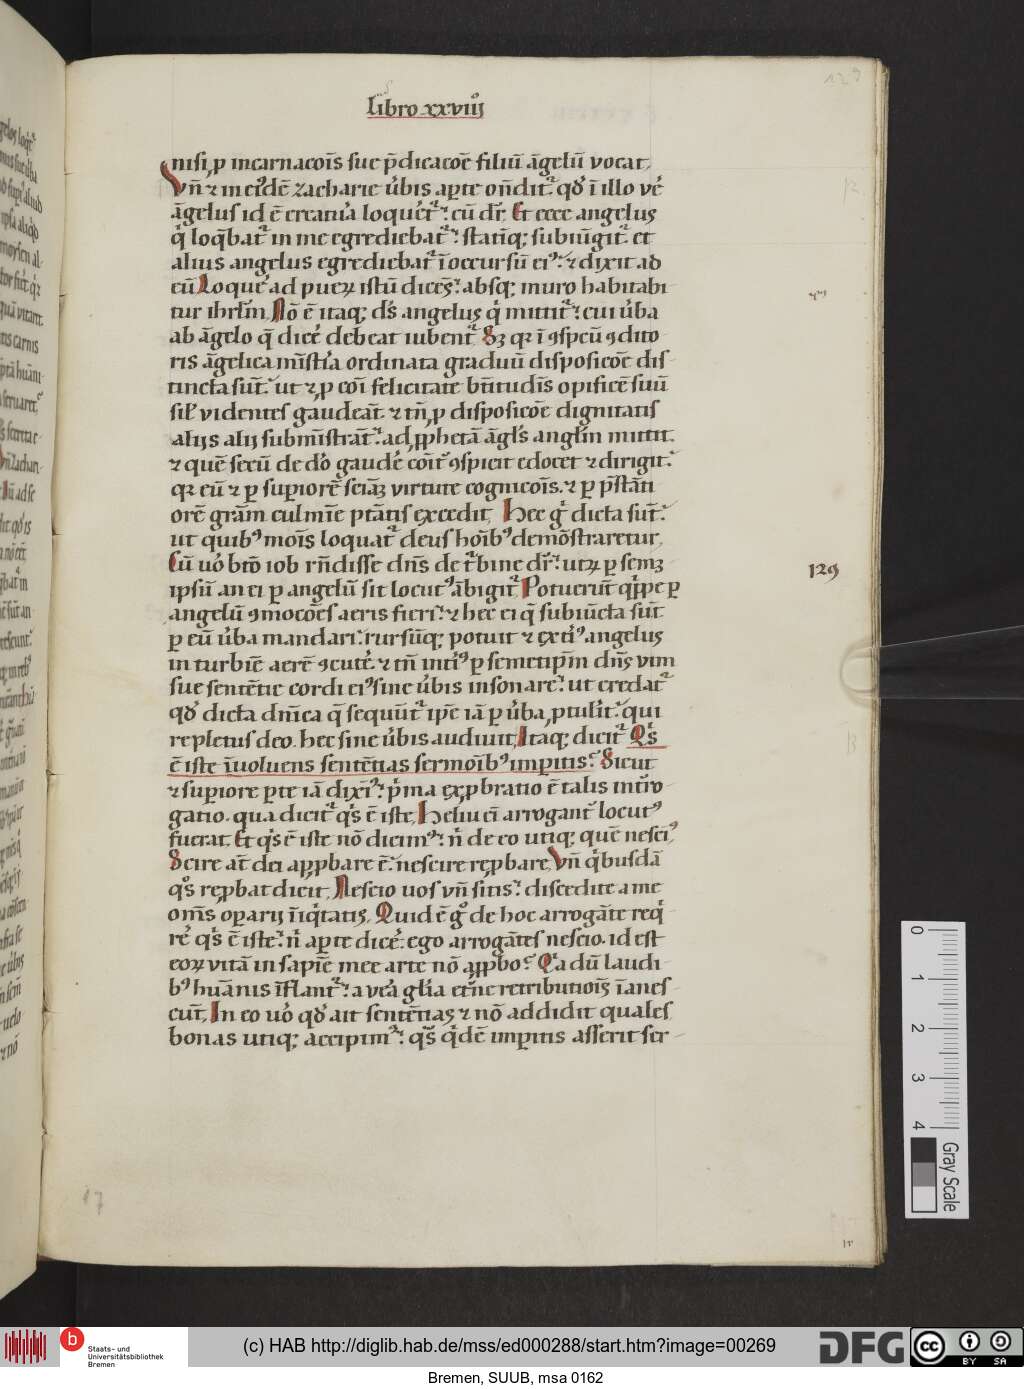 libro xxviij
nisi ꝓ incarnacoīs sue p̄dicacoē filiū āgelū vocat,
Vn̄ ⁊ in eod̄e zacharie ūbis aꝑte on̄dit᷑ qd̓ ī illo vē
āgelus id ē creatu̓a loquet᷑: cū dr̄. Et ecce angelus
q̓ loq̄bat᷑ in me egrediebat᷑: statīq; subiūgit᷑ et
alius angelus egrediebat᷑ ī occursū eiꝰ: ⁊ dixit ad
eū Loquē ad pueꝝ istū dicēs: absq; muro habitabi
tur ihrl̄m. Nō ē itaq; ds̄ angelus q̓ mittit᷑: cui ūba
ab āgelo q̄ dicē debeat iubent᷑ Sꝫ qꝛ ī ꝯspcū ꝯdito
ris āgelica mīstīa ordinata graduū disposicoē dis
tincta sūt: ut ⁊ ꝓ coī felicitate bn̄titudīs opificē suū
sil̓ videntes gaudeāt ⁊ tn̄ ꝓ disposicoē dignitatis
alijs alij submīstrāt᷑: ad ꝓphetā āgl̄s angl̄m mittit.
⁊ quē secū de dō gaudē coīt᷑ ꝯspicit edocet ⁊ dirigit:
qꝛ eū ⁊ ꝑ suꝑiorē sciāꝫ virtute cognicoīs. ⁊ ꝑ p̄stāti
orē grām culmīe ptātis excedit, Hec g̓ dicta sūt:
ut quibꝰ moīs loquat᷑ deus hoībꝰ demōstraretur,
Cū uō bt̄o iob rn̄disse dn̄s de t᷑bine dr̄: utꝝ ꝑ semꝫ
ipsū an ei ꝑ angelū sit locutꝰ ābigit᷑ Potuerūt q̓ppe ꝑ
angelū ꝯmocoēs aeris fieri: ⁊ hec ei q̄ subiūcta sūt
ꝑ eū ūba mandari: rursūq; potuit ⁊ ext᷑iꝰ angelus
in turbīe aerē ꝯcutē ⁊ tn̄ int᷑iꝰ ꝑ semetip̄m dn̄s vim
sue sentētie cordi eiꝰ sine ūbis insonare: ut credat᷑
qd̓ dicta dn̄ica q̄ sequūt᷑ ip̄e iā ꝑ ūba ꝓtulit: qui
repletus deo. hec sine ūbis audiuit, Itaq; dicit᷑ Qs̓
ē iste īvoluens sentētias sermoībꝰ imꝑitis: Sicut
⁊ suꝑiore ꝑte iā dixīꝰ: pīma exꝓbratio ē talis int᷑ro
gatio. qua dicit᷑ qs̓ ē iste, Heliu ei̅ arrogant᷑ locutꝰ
fuerat, Et qs̓ ē iste nō dicimꝰ: n̓ de eo utiq; quē nesciꝰ,
Scire at̄ dei aꝓpbare ē: nescire reꝓbare, Vn̄ q̓busdā
qs̓ reꝓbat dicit, Nescio uos vn̄ sitis: discedite a me
om̄s oꝑarij īiq̓tatis, Quid ē gͦ de hoc arrogāte req̓
rē qs̓ ē iste: n̓ aꝑte dicē: ego arrogātes nescio. id est
eoꝝ vitā in sapīe mee arte nō aꝓpbo: Qa dū laudi
bꝰ huānis īflant᷑: a ve̓a gl̄ia et̓ne retributiois īanes
cūt, In eo uō qd̓ ait sentētias ⁊ nō addidit quales
bonas utiq; accipimꝰ: qs̓ q̓dē imꝑitis asserit ser
129
129
17
0
1
2
3
4
Gray Scale
b Staats- und
Universitätsbibliothek
Bremen
(c) HAB http://diglib.hab.de/mss/ed000288/start.htm?image=00269
DFG
cc BY SA
Bremen, SUUB, msa 0162